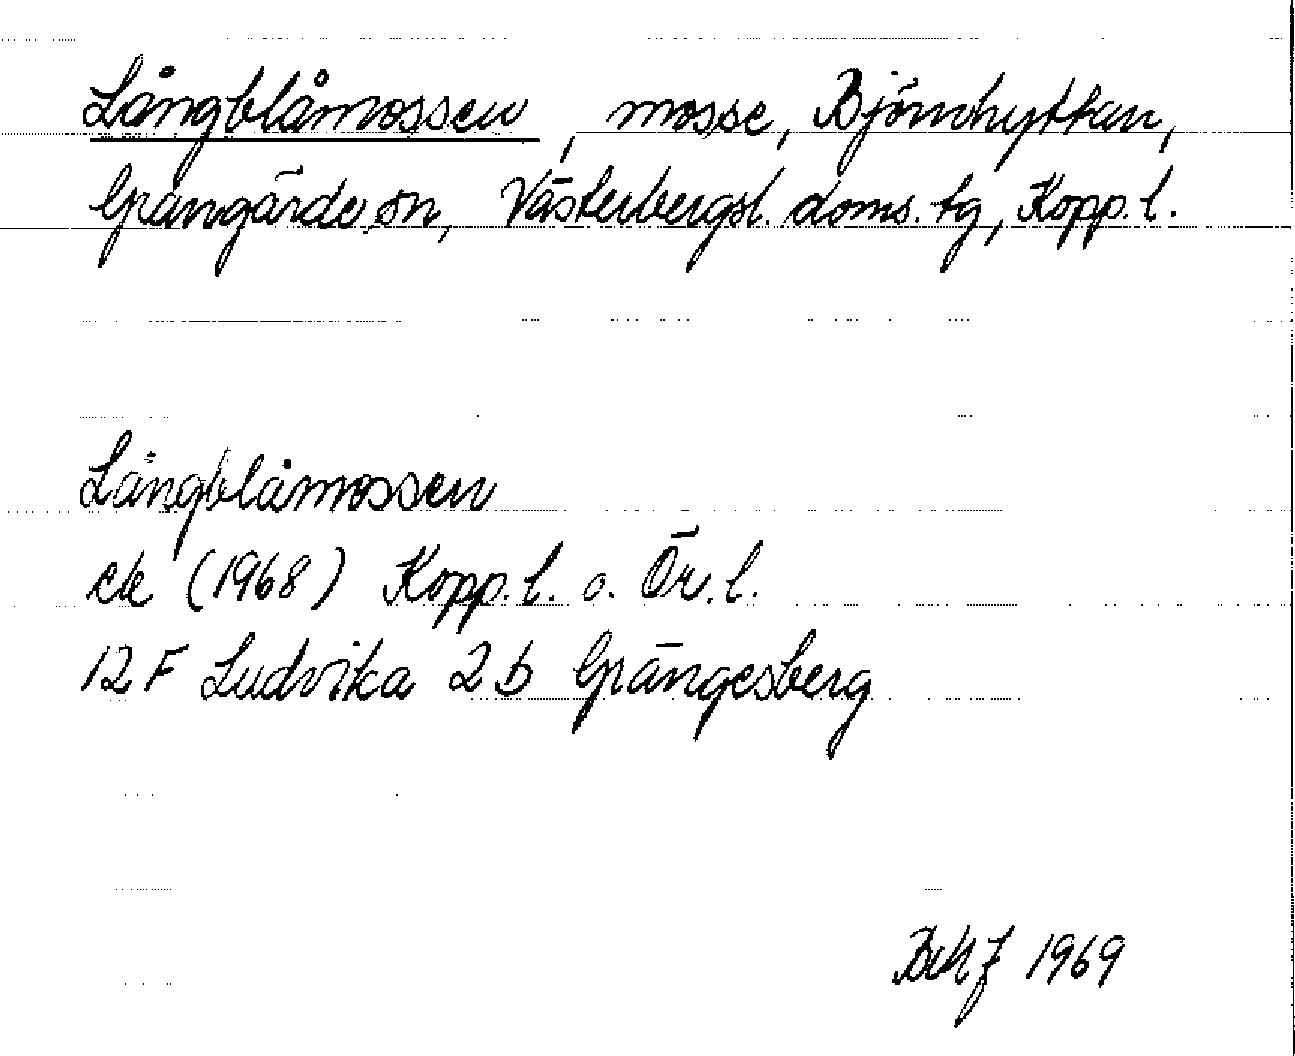 Långblåmossen, mosse, Björnhyttan,
Grangärde sn, Västerbergsl. doms. tg, Kopp. l.
Långblåmossen
ek (1968) Kopp. l. o. Ör. l.
12 F Ludvika 2 b Grängesberg
1969